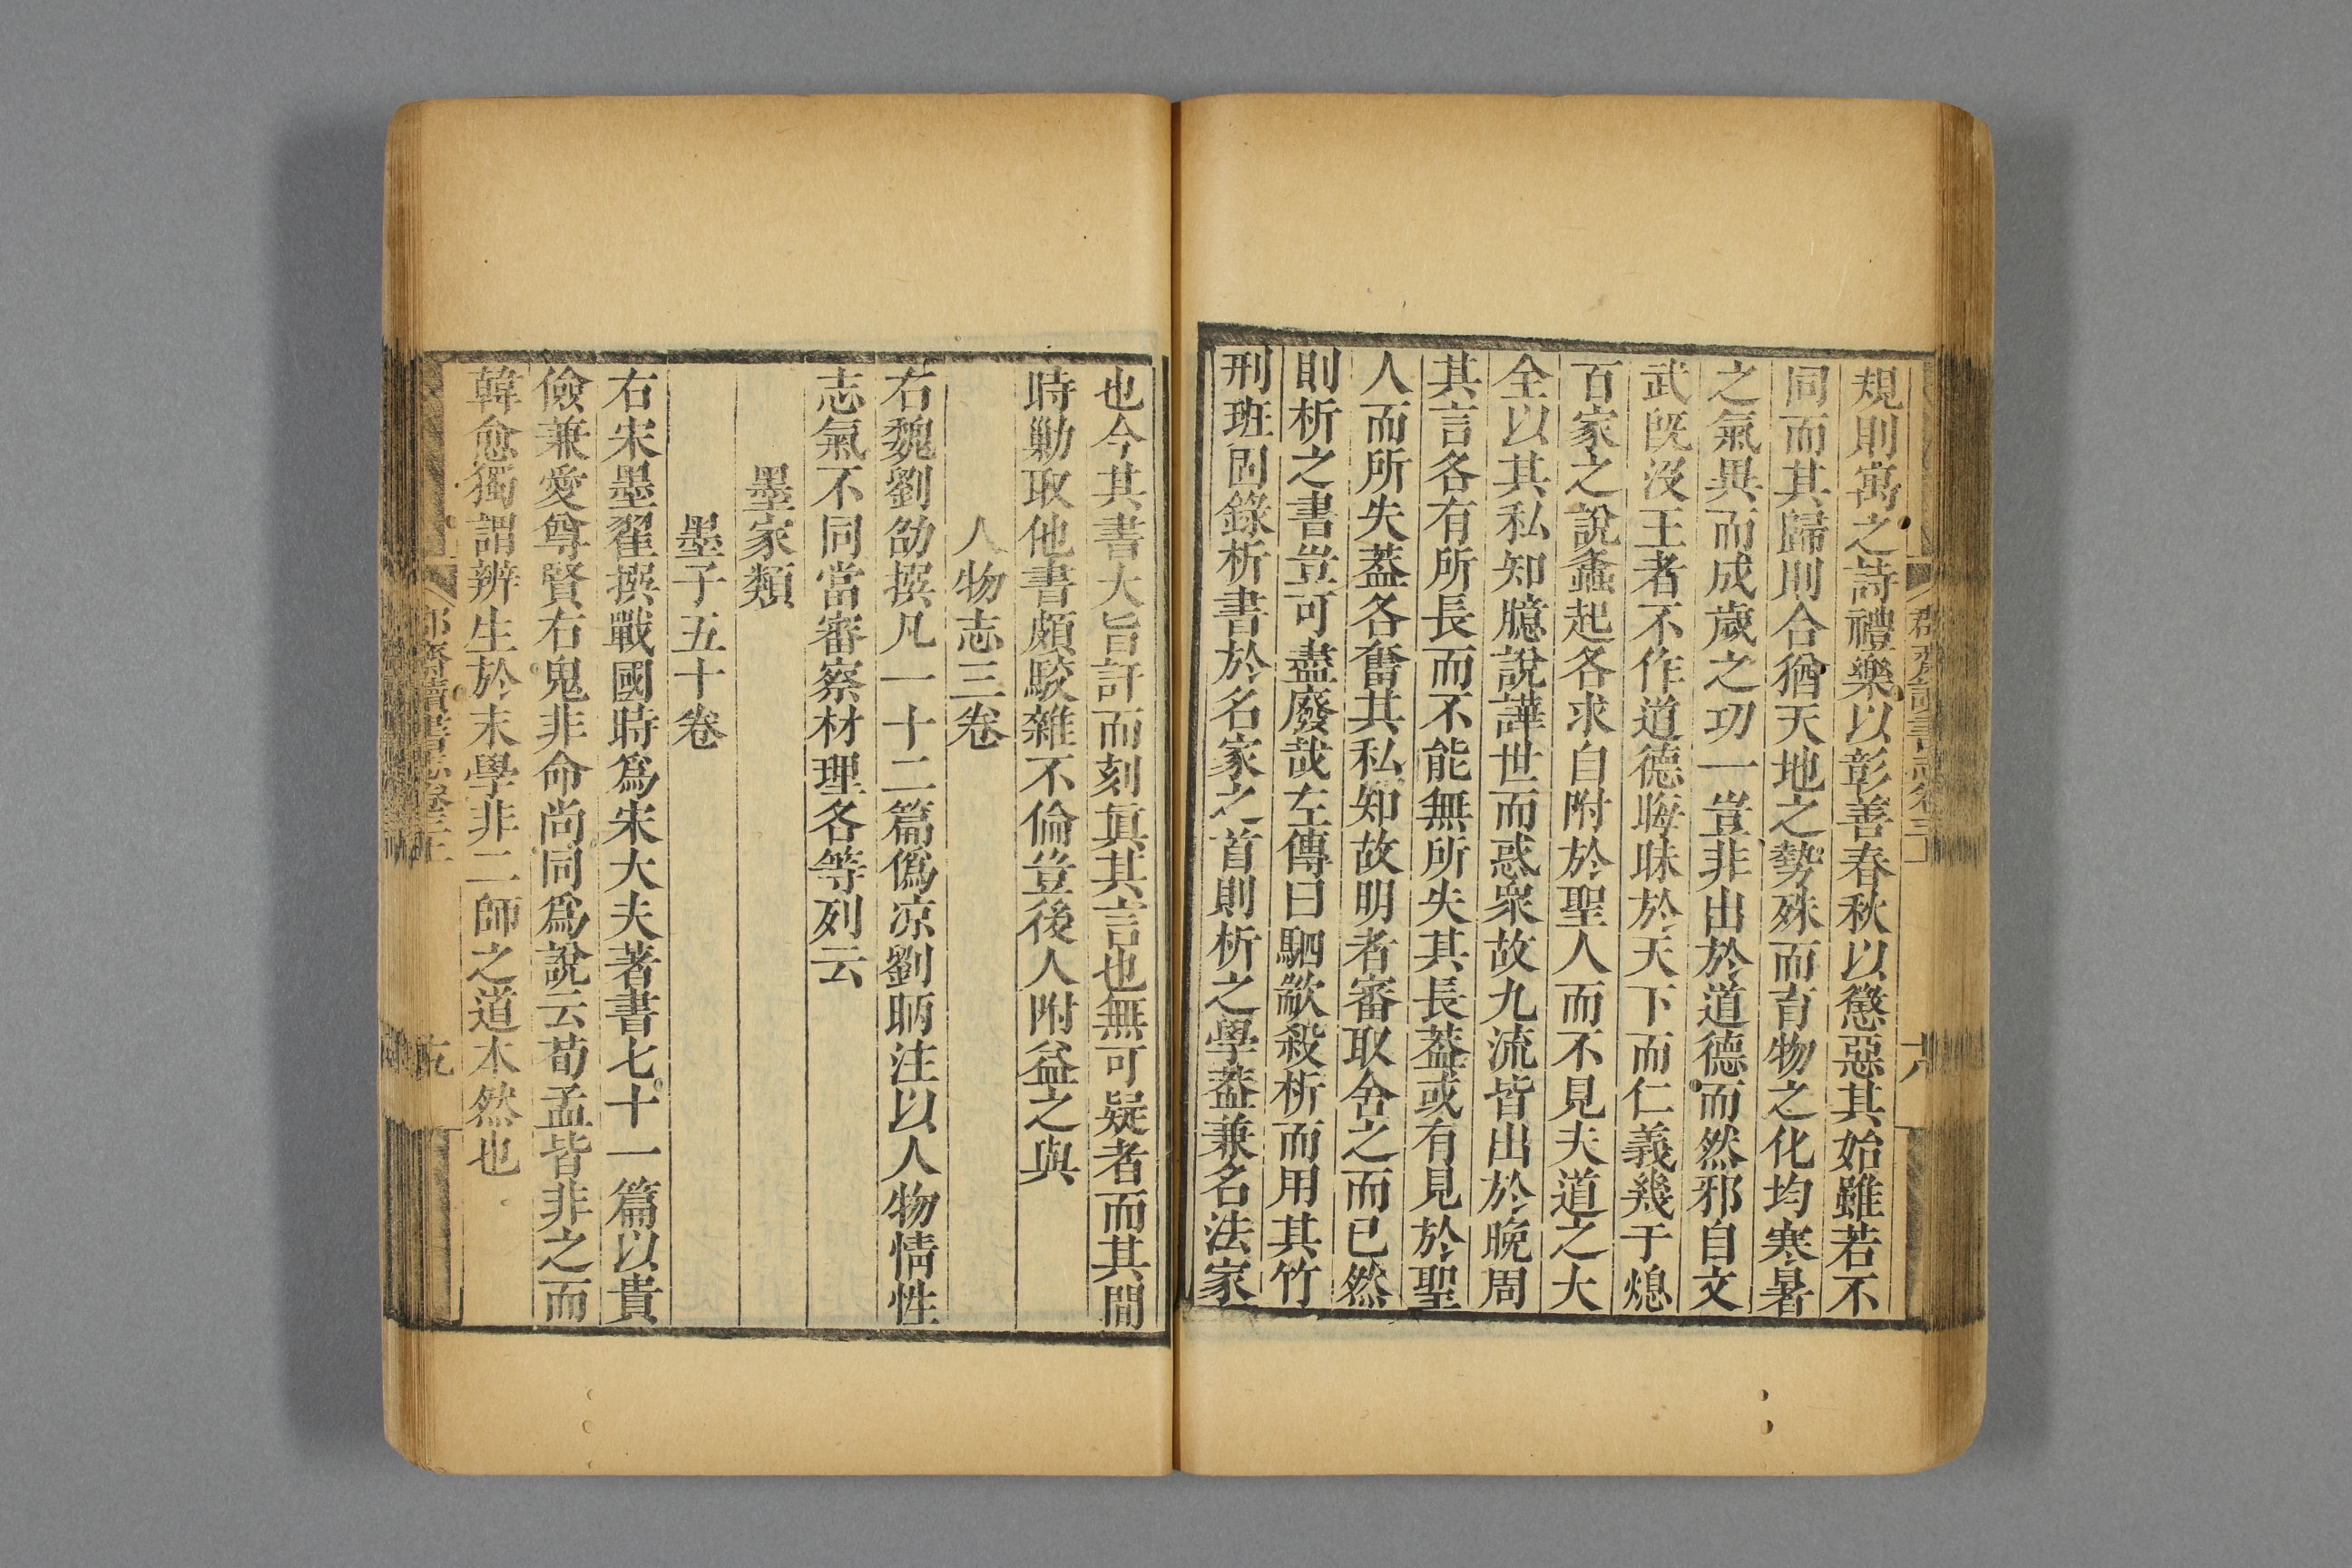 規則寓之詩禮樂以彰善春秋以懲惡其始雖若不
同而其歸則合猶天地之勢殊而育物之化均寒暑
之氣異而成歲之功一豈非出於道德而然邪自文
武旣沒王者不作道德晦昧於天下而仁義幾于熄
百家之說蠭起各求自附於聖人而不見夫道之大
全以其私知臆說譁世而惑衆故九流皆出於晚周
其言各有所長而不能無所失其長蓋或有見於聖
人而所失蓋各奮其私知故明者審取舍之而已然
則析之書豈可盡廢哉左傳曰駟歂殺析而用其竹
刑班固錄析書於名家之首則析之學蓋兼名法家
也今其書大旨訐而刻真其言也無可疑者而其間
時勦取他書頗駮雜不倫豈後人附益之與
人物志三卷
右魏劉劭撰凡一十二篇僞凉劉昞注以人物情性
志氣不同當審察材理各等列云
墨家類
墨子五十卷
右宋墨翟撰戰國時爲宋大夫著書七十一篇以貴
儉兼愛尊賢右鬼非命尚同爲說云荀孟皆非之而
韓愈獨謂辨生於末學非二師之道本然也